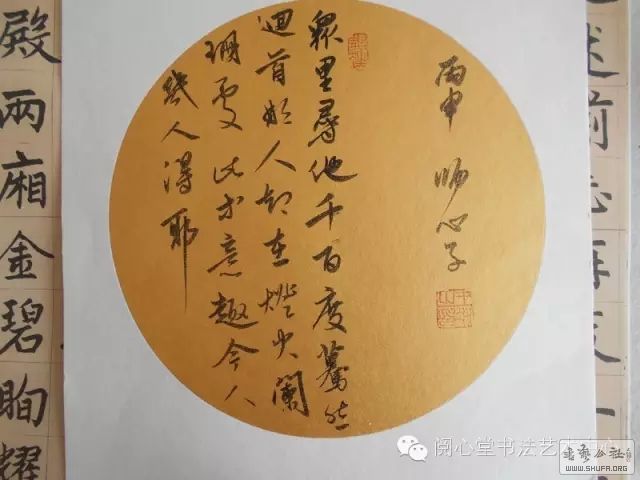 述前
丙申 師心子
眾里尋他千百度驀然
迴首那人卻在燈火闌
珊處此等意趣今人
幾人得耶
殿兩廂金碧眴耀
阅心堂书法艺术中心
書藝公社
WWW.SHUFA.ORG